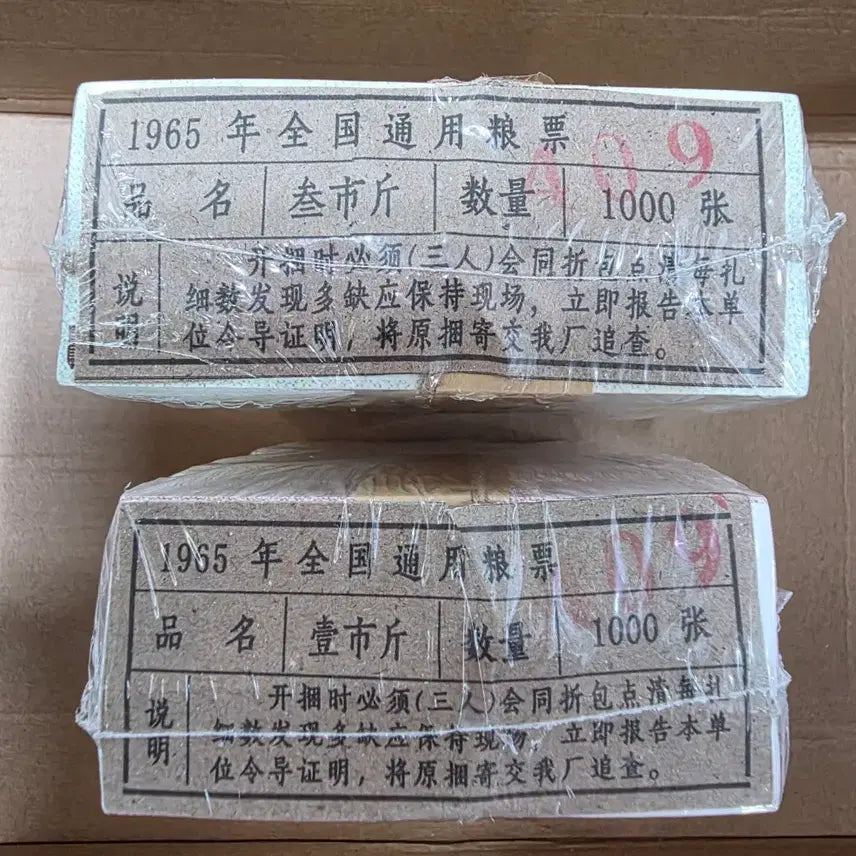 1965年全国通用粮票
409
品名 叁市斤 数量 1000张
说明
开捆时必须(三人)会同折包点清每扎
细数发现多缺应保持现场，立即报告本单
位令导证明，将原捆寄交我厂追查。
1965年全国通用粮票
09
品名 壹市斤 数量 1000张
说明
开捆时必须(三人)会同折包点清每扎
细数发现多缺应保持现场，立即报告本单
位令导证明，将原捆寄交我厂追查。